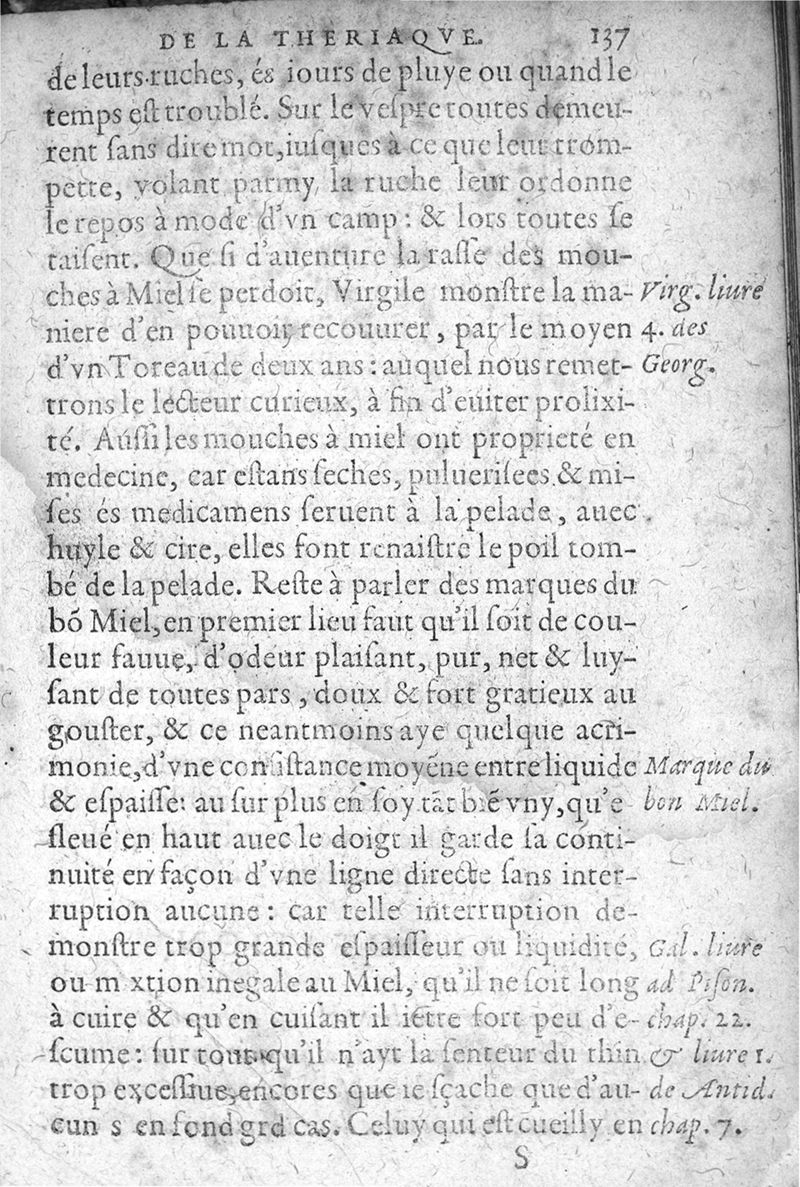 DE LA THERIAQVE. 137
de leurs ruches, és iours de pluye ou quand le
temps est troublé. Sur le vespre toutes demeu-
rent sans dire mot, iusques à ce que leur trom-
pette, volant parmy la ruche leur ordonne
le repos à mode d'vn camp : & lors toutes se
taisent. Que si d'auenture la rasse des mou-
ches à Miel se perdoit, Virgile monstre la ma-
niere d'en pouuoir recouurer, par le moyen
d'vn Toreau de deux ans : auquel nous remet-
trons le lecteur curieux, à fin d'euiter prolixi-
té. Aussi les mouches à miel ont proprieté en
medecine, car estans seches, puluerisees & mi-
ses és medicamens seruent à la pelade, auec
huyle & cire, elles font renaistre le poil tom-
bé de la pelade. Reste à parler des marques du
bõ Miel, en premier lieu faut qu'il soit de cou-
leur fauue, d'odeur plaisant, pur, net & luy-
sant de toutes pars, doux & fort gratieux au
gouster, & ce neantmoins aye quelque acri-
monie, d'vne consistance moyéne entre liquide
& espaisse: au sur plus en soy tãt biẽ vny, qu'e
sleué en haut auec le doigt il garde sa conti-
nuité en façon d'vne ligne directe sans inter-
ruption aucune : car telle interruption de-
monstre trop grande espaisseur ou liquidité,
ou m xtion inegale au Miel, qu'il ne soit long
à cuire & qu'en cuisant il iette fort peu d'e-
scume : sur tout qu'il n'ayt la senteur du thin
trop excessiue, encores que ie sçache que d'au-
cun s en fond grd cas. Celuy qui est cueilly en
S
Virg. liure
4. des
Georg.
Marque du
bon Miel.
Gal. liure
ad Pison.
chap. 22.
& liure 1.
de Antid.
chap. 7.